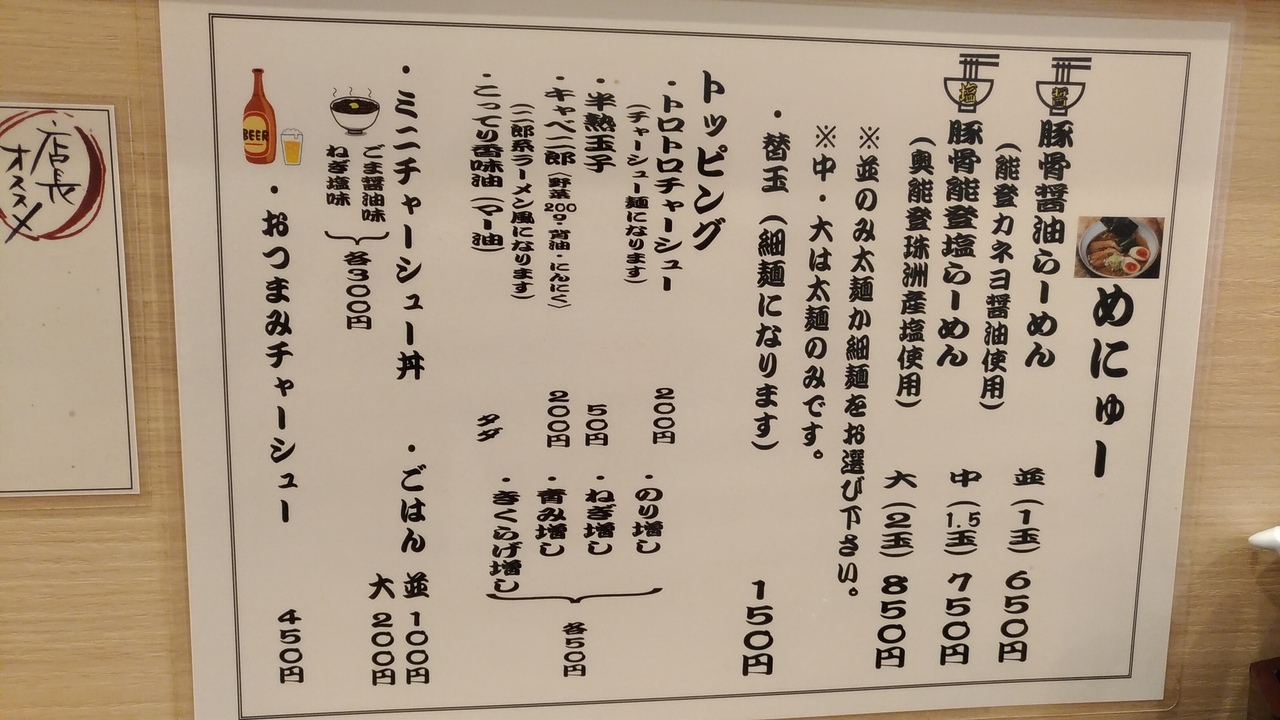 めにゅー
醤
豚骨醤油らーめん
(能登カネヨ醤油使用)
塩
豚骨能登塩らーめん
(奥能登珠洲産塩使用)
並(1玉) 650円
中(1.5玉) 750円
大(2玉) 850円
※並のみ太麺か細麺をお選び下さい。
※中・大は太麺のみです。
・替玉(細麺になります) 150円
トッピング
・トロトロチャーシュー 200円
(チャーシュー麺になります)
・半熟玉子 50円
・キャベ二郎(野菜200g・背油・にんにく) 200円
(二郎系ラーメン風になります)
・こってり香味油(マー油) タダ
・のり増し
・ねぎ増し
・青み増し
・きくらげ増し
各50円
・ミニチャーシュー丼
ごま醤油味
ねぎ塩味
各300円
・ごはん 並 100円
大 200円
BEER
・おつまみチャーシュー 450円
店長
オススメ